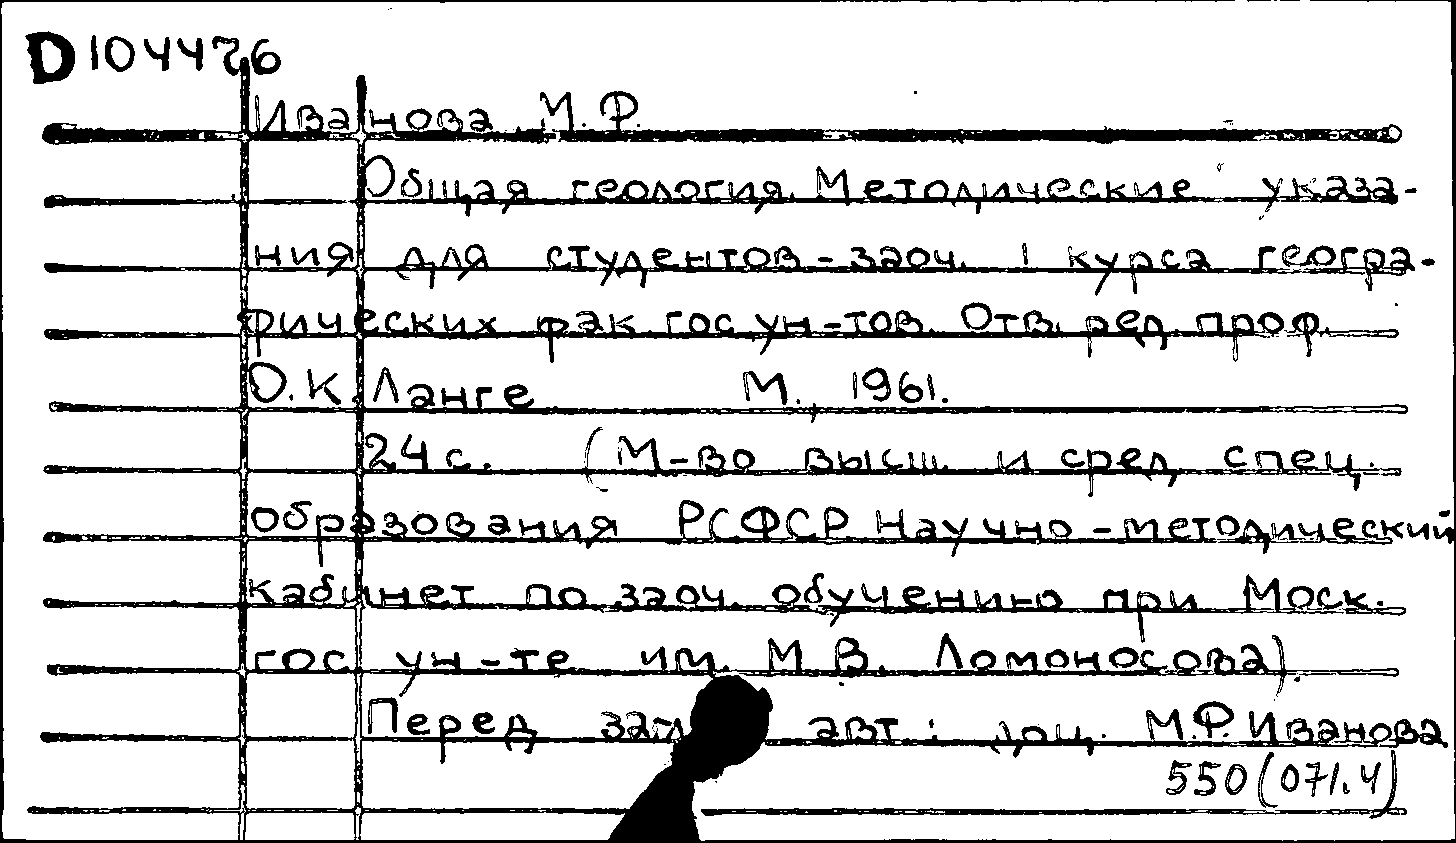 D104476
Иванова М.Р.
Общая геология. Методические указа-
ния для студентов-заоч. I курса геогра-
фических фак. гос. ун-тов. Отв. ред. проф.
О.К. Ланге М., 1961.
24 с. (М-во высш. и сред. спец.
образования РСФСР. Научно-методический
кабинет по заоч. обучению при Моск.
гос. ун-те им. М.В. Ломоносова).
Перед авт.: доц. М.Р. Иванова
550(071.4)